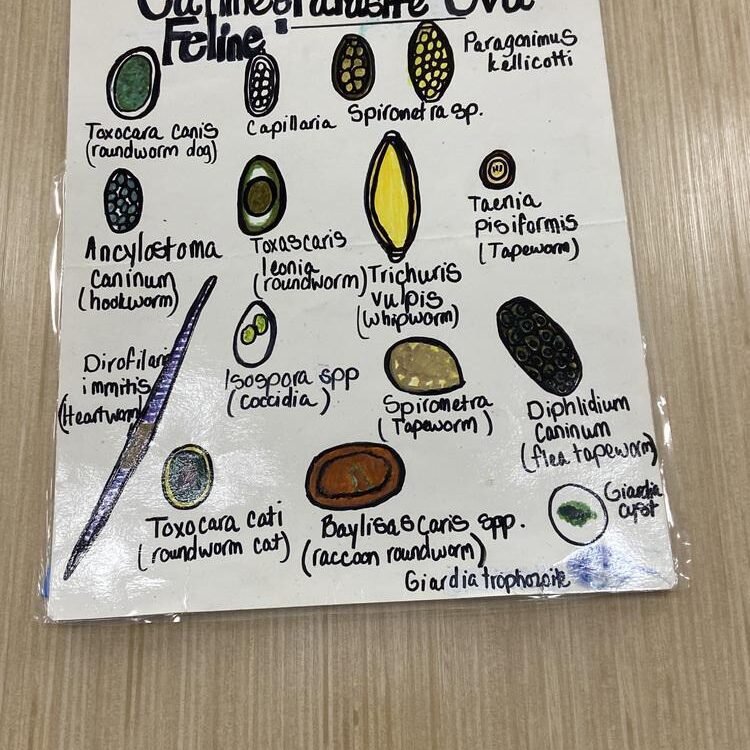 Canine & Parasite Ova
Feline :
Paragonimus
kellicotti
Toxocara canis
(roundworm dog)
Capillaria
Spirometra sp.
Ancylostoma
caninum
(hookworm)
Toxascaris
leonia
(roundworm)
Trichuris
vulpis
(whipworm)
Taenia
pisiformis
(Tapeworm)
Dirofilari
immitis
(Heartworm)
Isospora spp
(coccidia)
Spirometra
(Tapeworm)
Diphlidium
caninum
(flea tapeworm)
Toxocara cati
(roundworm cat)
Baylisascaris spp.
(raccoon roundworm)
Giardia
cyst
Giardia trophozoite